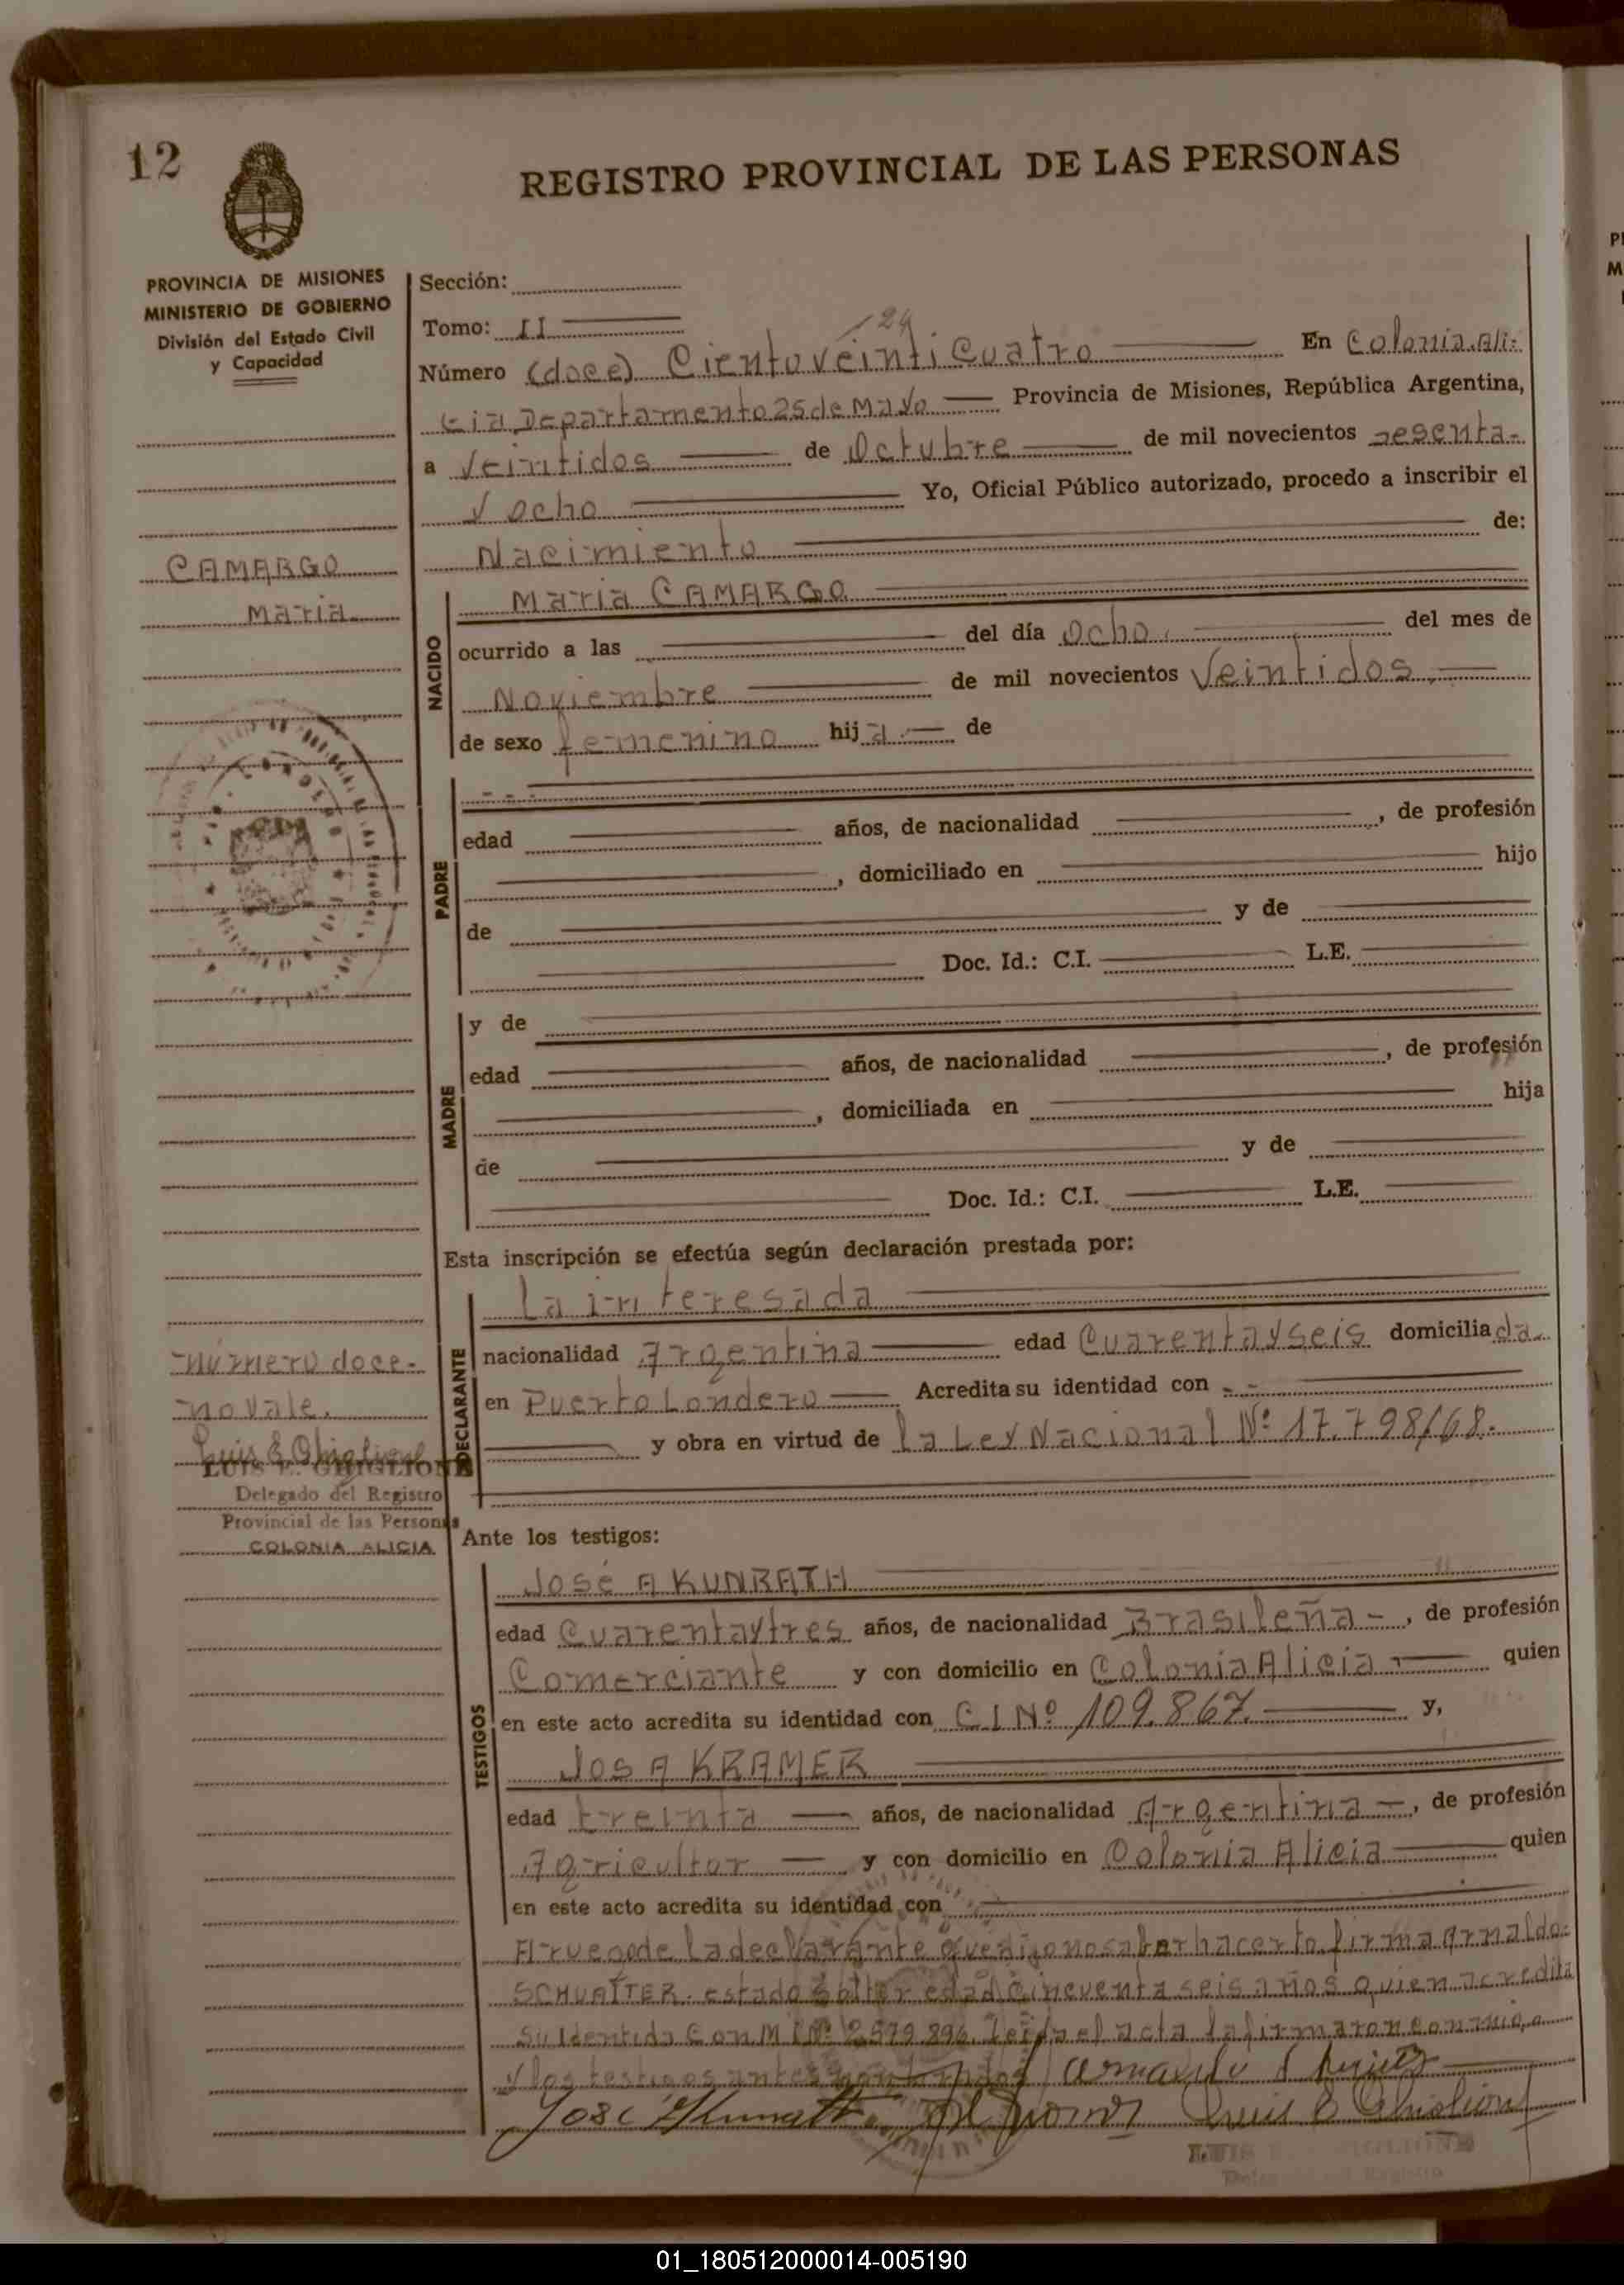 12
REGISTRO PROVINCIAL DE LAS PERSONAS
PROVINCIA DE MISIONES
MINISTERIO DE GOBIERNO
División del Estado Civil
y Capacidad
Sección:
Tomo: II
124
Número (doce) Ciento veinti Cuatro En Colonia Ali-
cia Departamento 25 de Mayo Provincia de Misiones, República Argentina,
a veintidos de Octubre de mil novecientos sesenta-
y ocho Yo, Oficial Público autorizado, procedo a inscribir el
Nacimiento de:
CAMARGO
Maria
NACIDO
Maria CAMARGO
ocurrido a las del día Ocho. del mes de
Noviembre de mil novecientos Veintidos.
de sexo femenino hija de
PADRE
edad años, de nacionalidad , de profesión
, domiciliado en hijo
de y de
Doc. Id.: C.I. L.E.
MADRE
y de
edad años, de nacionalidad , de profesión
, domiciliada en hija
de y de
Doc. Id.: C.I. L.E.
Esta inscripción se efectúa según declaración prestada por:
DECLARANTE
la interesada
nacionalidad Argentina edad Cuarenta y seis domiciliada
en Puerto Londero Acredita su identidad con
y obra en virtud de la Ley Nacional Nº 17.798/68.
número doce-
no vale.
Luis E Ghiglione
LUIS E. GHIGLIONE
Delegado del Registro
Provincial de las Personas
COLONIA ALICIA
Ante los testigos:
TESTIGOS
José A KUNRATH
edad Cuarenta y tres años, de nacionalidad Brasileña - , de profesión
Comerciante y con domicilio en Colonia Alicia quien
en este acto acredita su identidad con C I Nº 109.867. y,
Jos A KRAMER
edad treinta años, de nacionalidad Argentina - , de profesión
Agricultor y con domicilio en Colonia Alicia quien
en este acto acredita su identidad con
A ruego de la declarante que dijo no saber hacerlo firma Arnaldo-
estado Solter edad Cincuenta seis años quien acredita
su identida Con M I Nº 2.579.896. Leida el acta la firmaron conmigo
y los testigos antes nombrados
Luis E Ghiglione
LUIS E. GHIGLIONE
Delegado del Registro
01_180512000014-005190